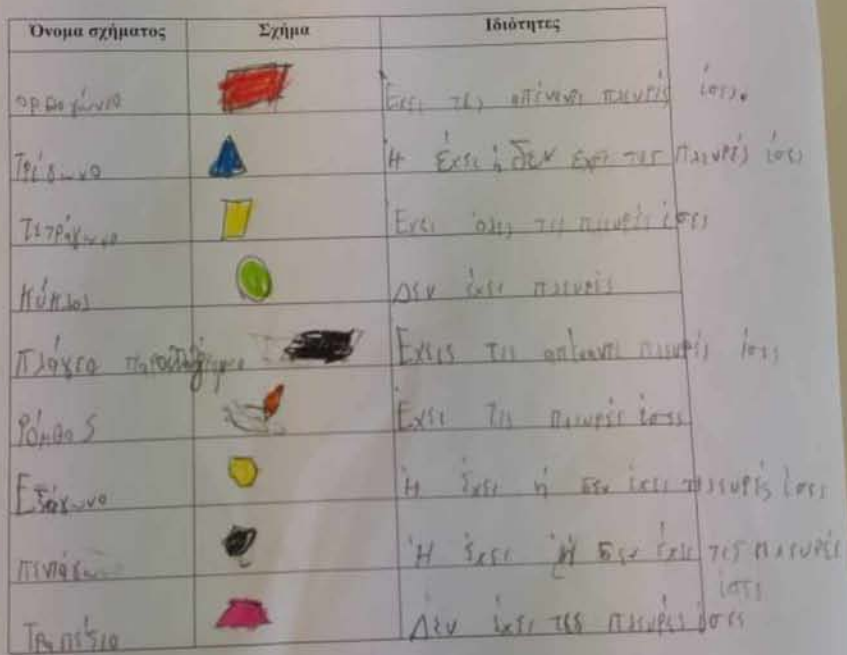 Όνομα σχήματος Σχήμα Ιδιότητες
ορθογώνιο Έχει τις απέναντι πλευρές ίσες.
Τρίγωνο Ή έχει ή δεν έχει τις πλευρές ίσες
Τετράγωνο Έχει όλες τις πλευρές ίσες
Κύκλος Δεν έχει πλευρές
Πλάγιο Έχεις τις πλευρές ίσες
Ρόμβος Έχει τις πλευρές ίσες
Εξάγωνο Ή έχει ή δεν έχει πλευρές ίσες
Ή έχει ή δεν έχει τις πλευρές
ίσες
Τραπέζιο Δεν έχει τες πλευρές ίσες